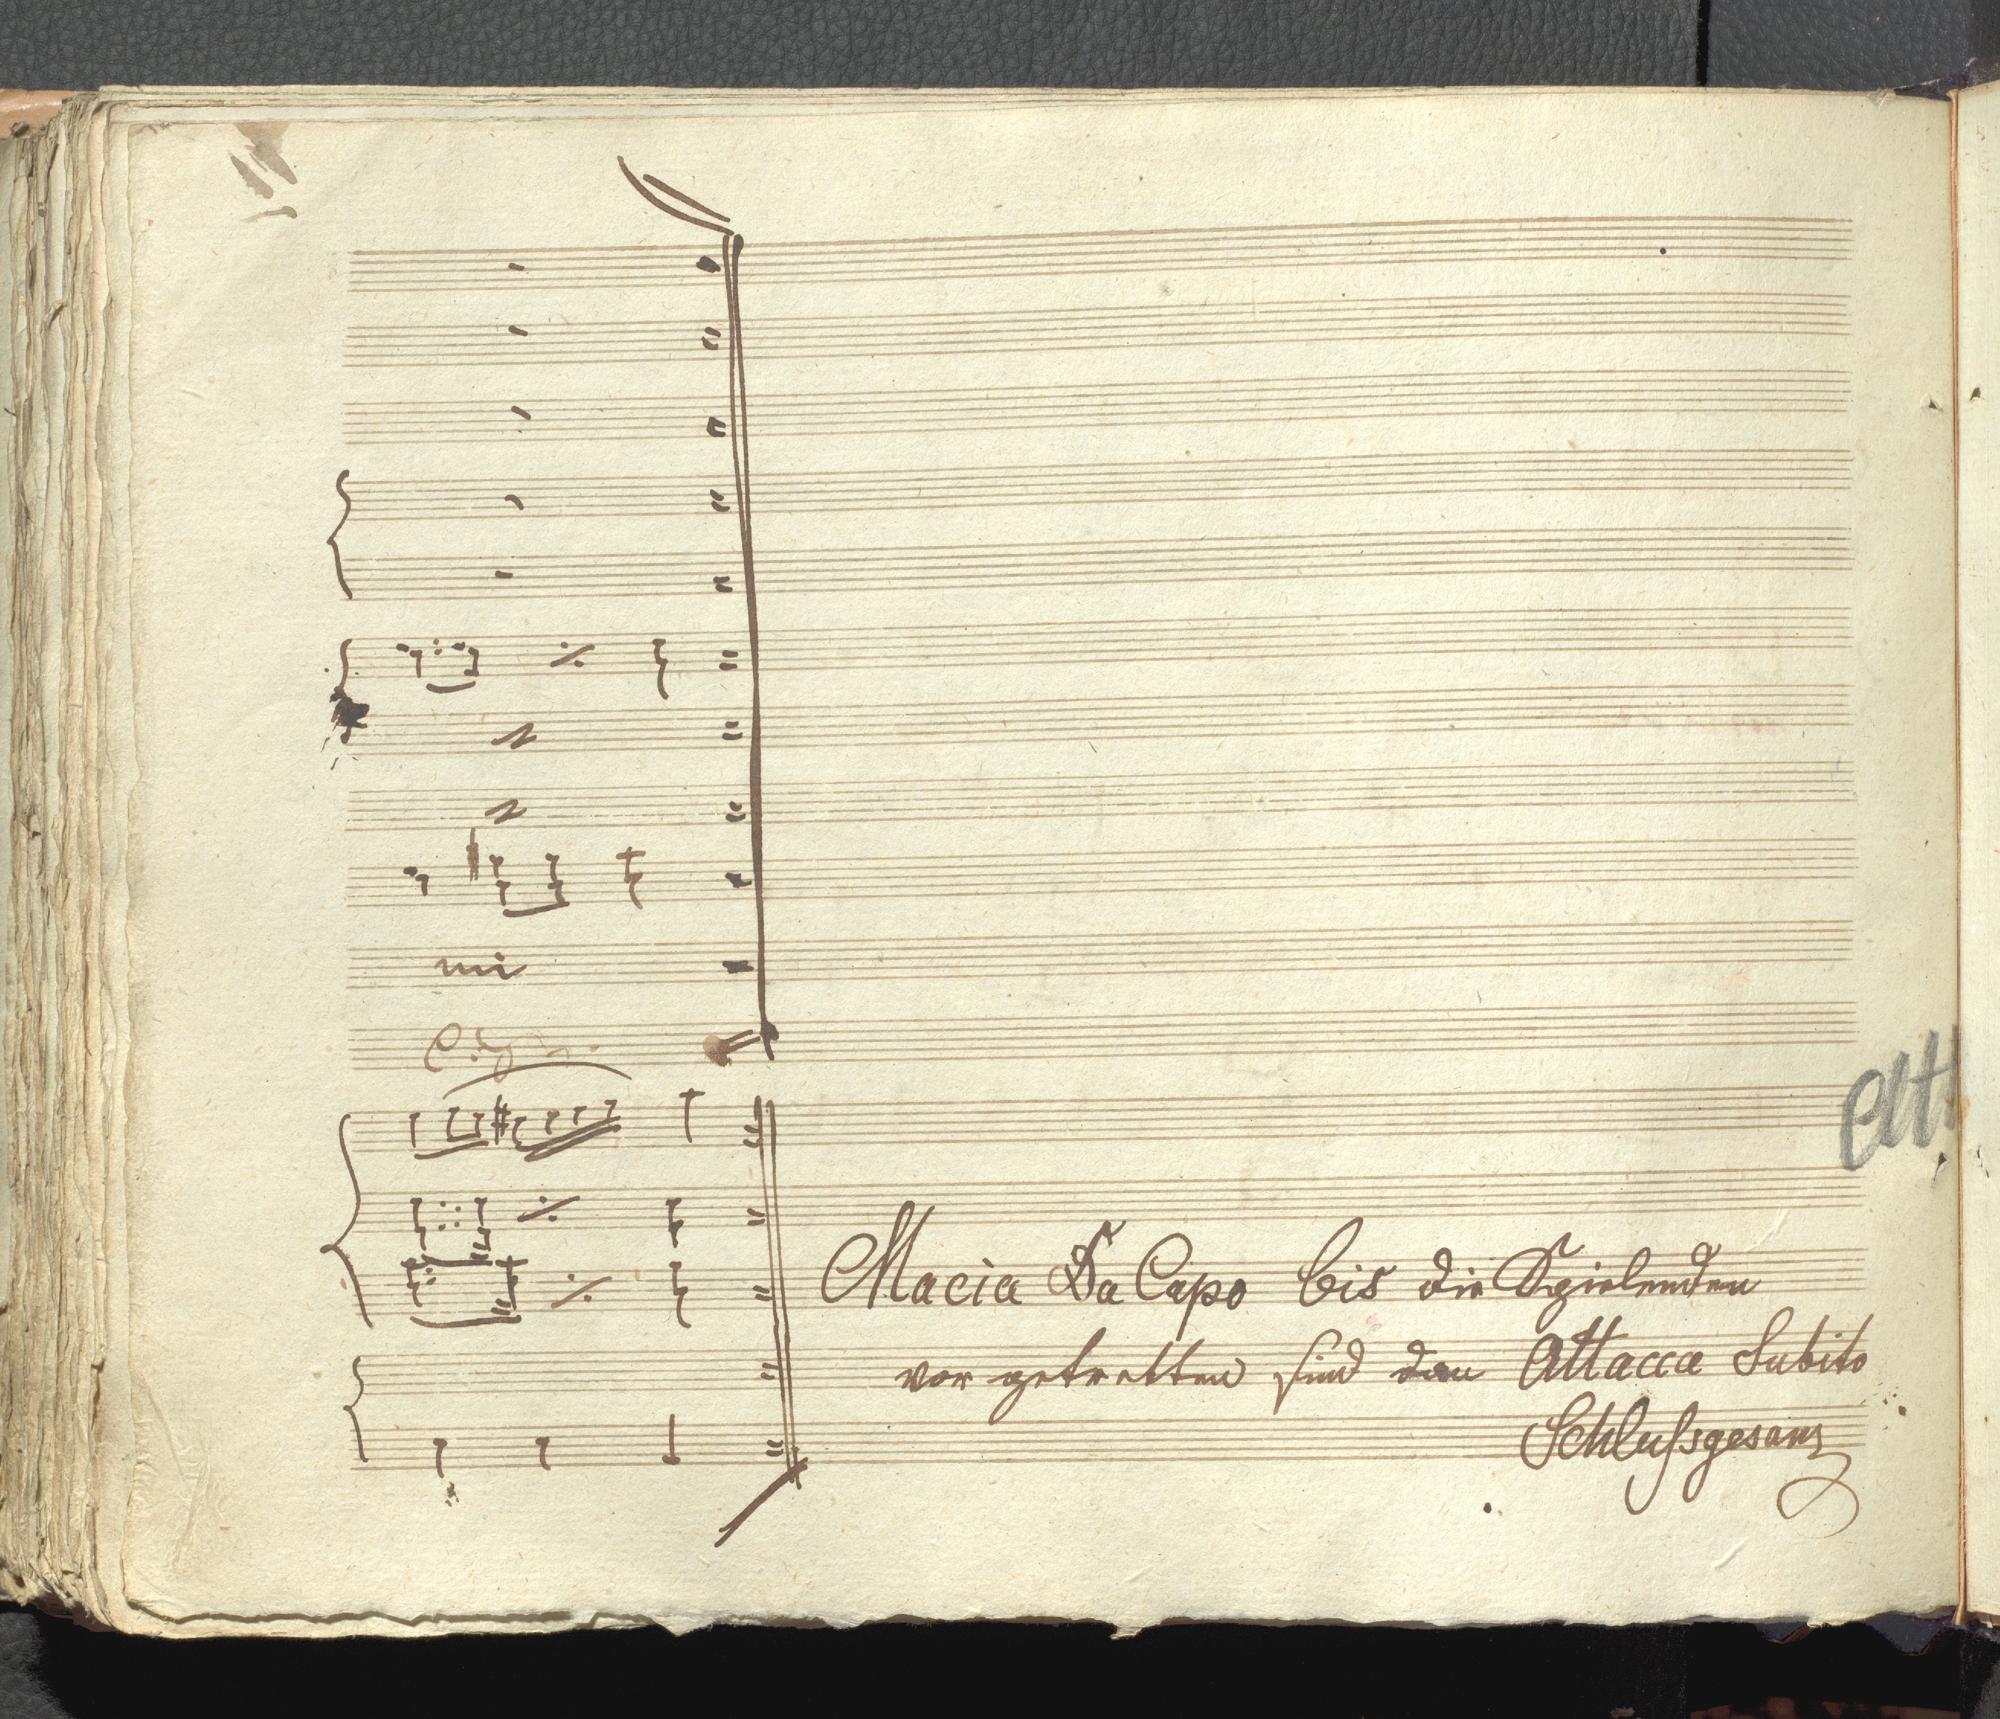 mi
att
Macia Da Capo bis die Spielenden
vor getretten sind dan Attacca Subito
Schlußgesang